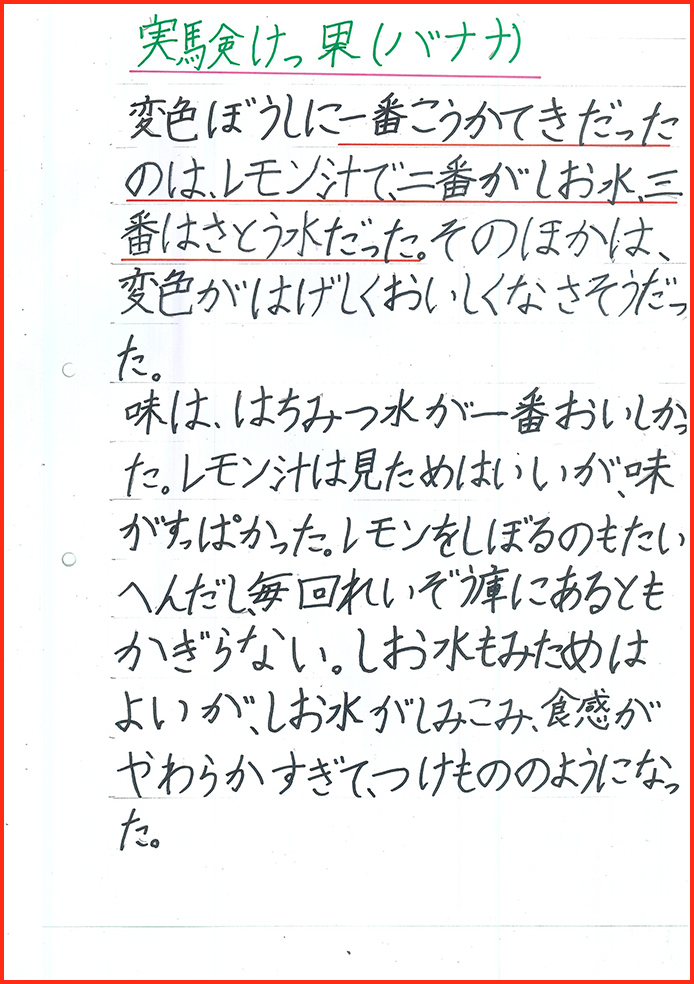 実験けっ果(バナナ)
変色ぼうしに一番こうかてきだった
のは、レモン汁で、二番がしお水、三
番はさとう水だった。そのほかは、
変色がはげしくおいしくなさそうだっ
た。
味は、はちみつ水が一番おいしかっ
た。レモン汁は見ためはいいが、味
がすっぱかった。レモンをしぼるのもたい
へんだし、毎回れいぞう庫にあるとも
かぎらない。しお水もみためは
よいが、しお水がしみこみ、食感が
やわらかすぎて、つけもののようになっ
た。